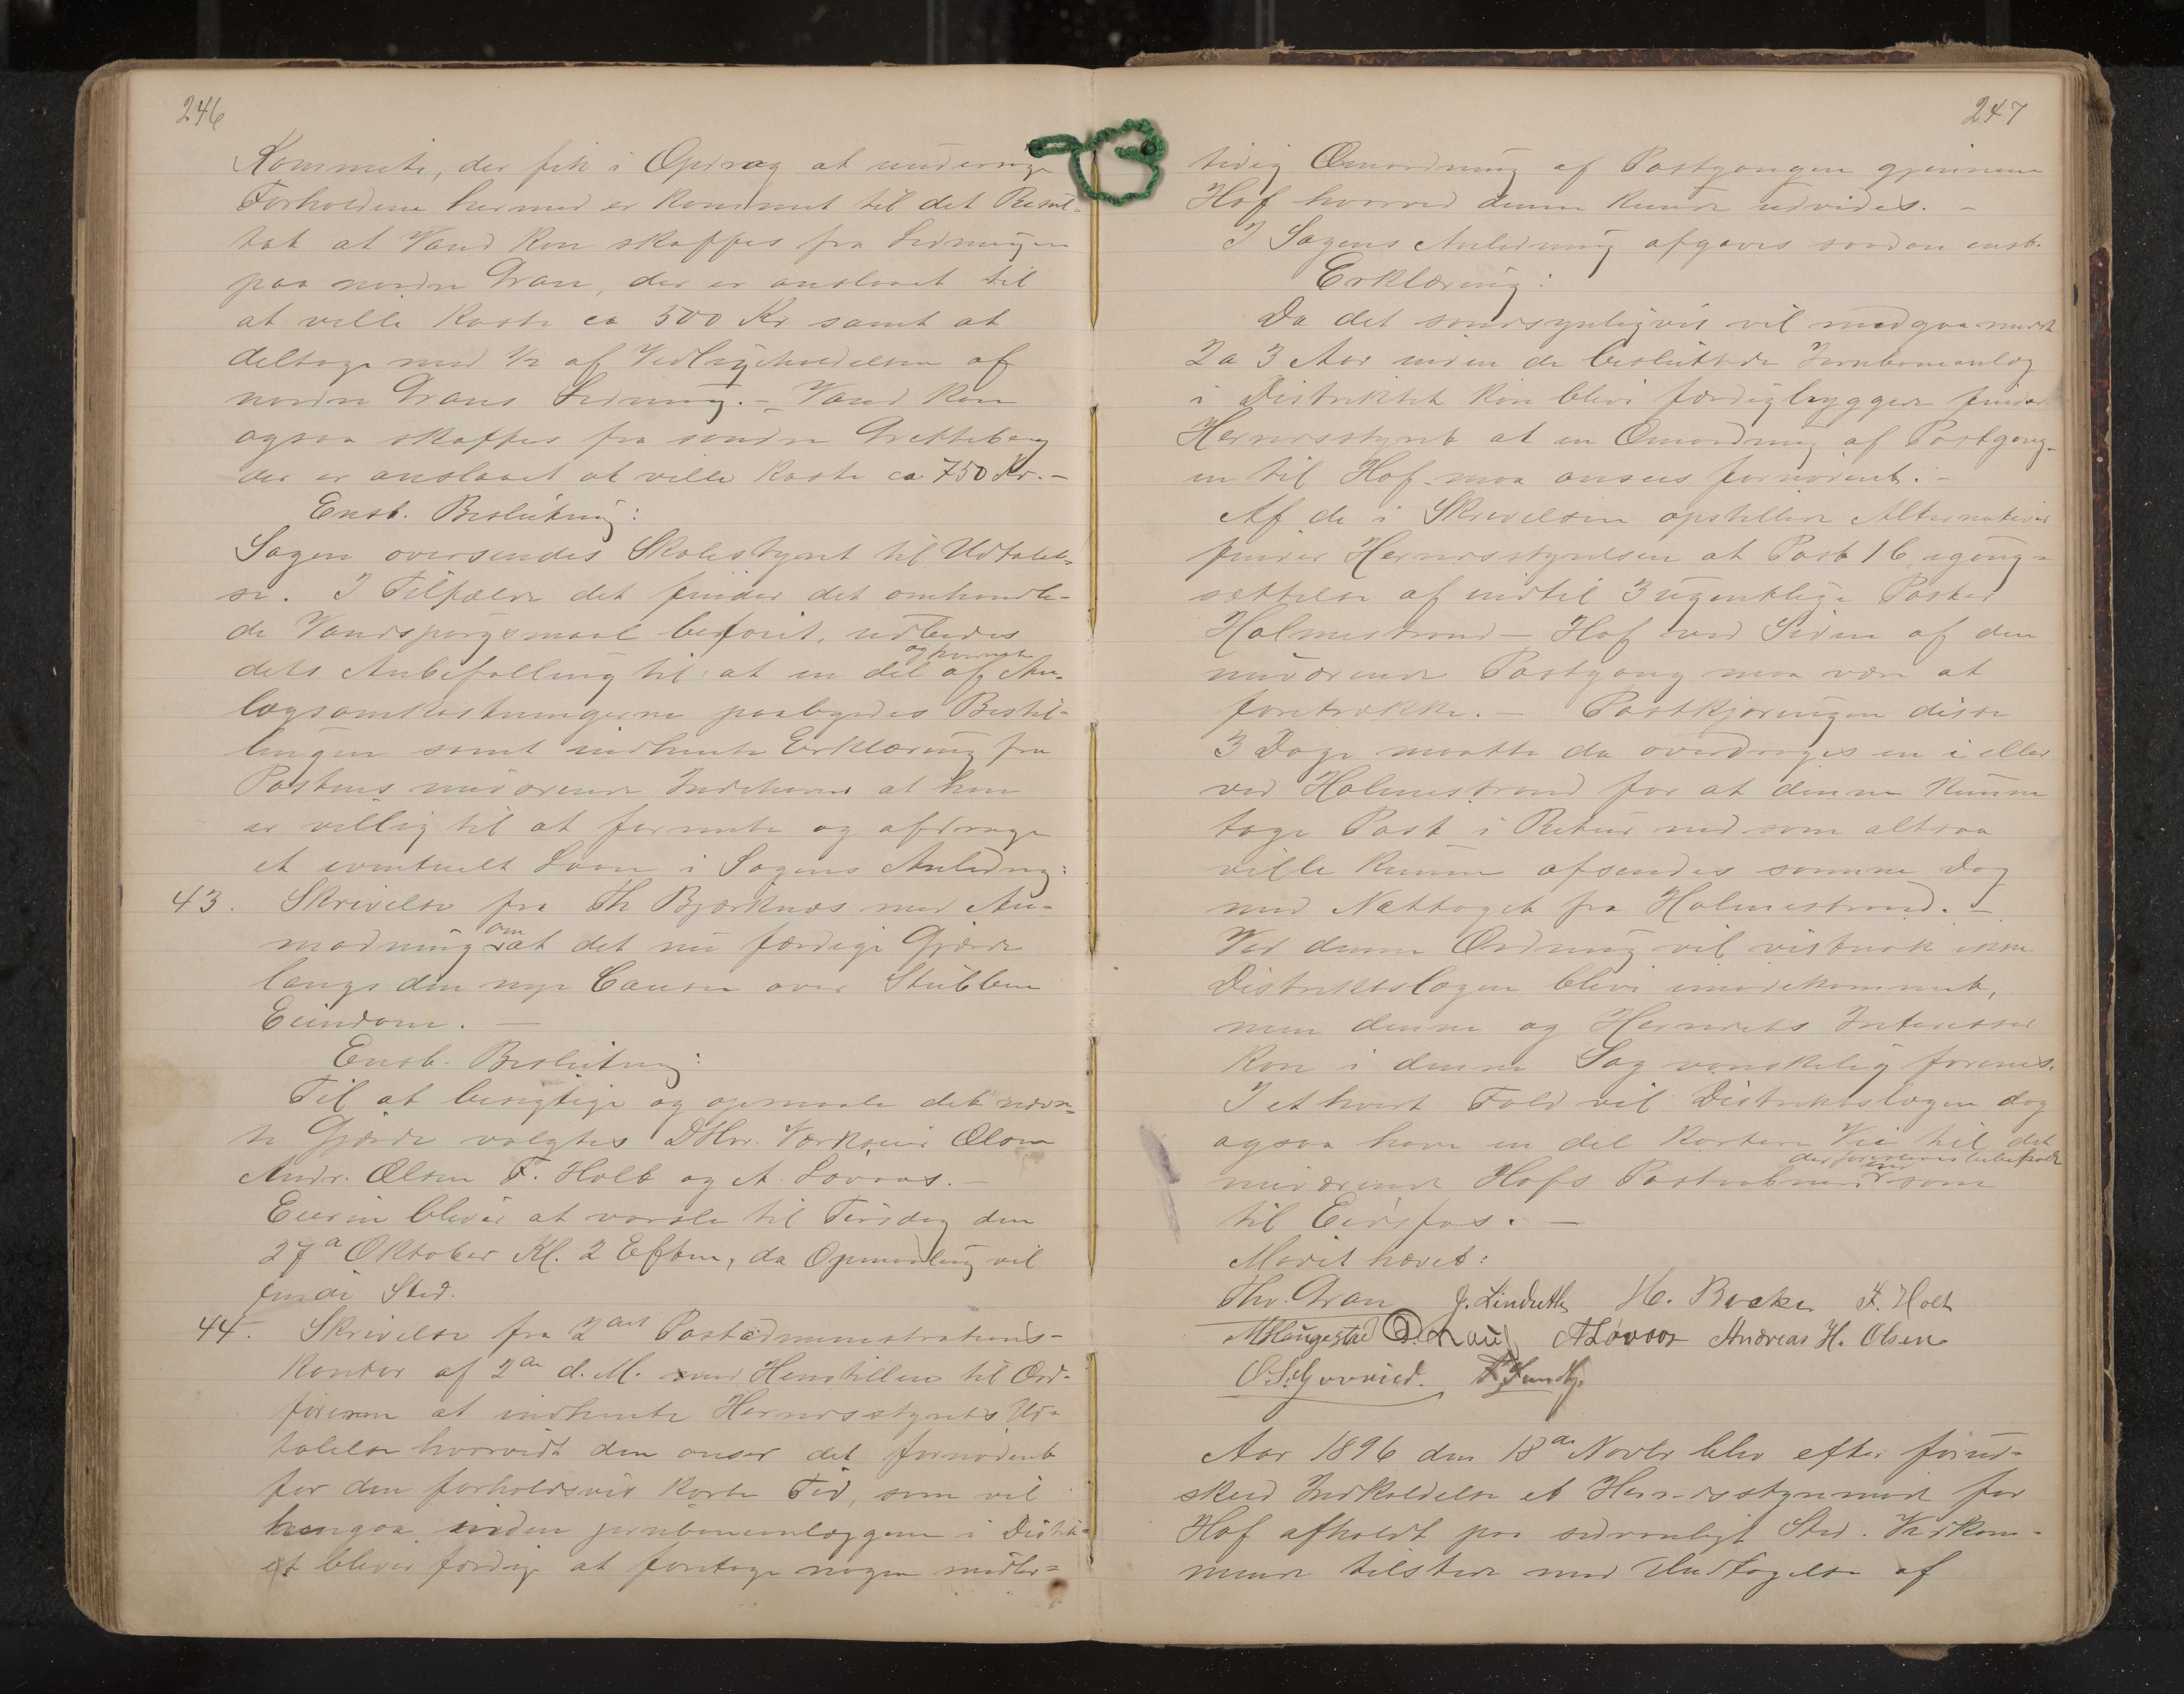 246
Kommite, der fik i Opdrag at undersøge
Forholdene hermed er kommet til det Resul-
tat at Vand kan skaffes fra Ledningen
paa nordre Gran, der er anslaaet til
at ville koste ca 500 Kr samt at
deltage med 1/2 af Vedligeholdelsen af
nordre Grans Ledning. - Vand kan
ogsaa skaffes fra søndre Gretteberg
der er anslaaet at ville koste ca 750 Kr. -
Enst. Beslutning:
Sagen oversendes Skolestyret til Udtalel-
se. I Tilfælde det finder det omhandle-
de Vandspørgsmaal beføiet, udbedes
dets Anbefalling til at en del af An-
lægsomkostningerne paabyrdes Bestil-
lingen samt indhente Erklæring fra
Postens nuværende Indehaver at han
er villig til at forrente og afdrage
et eventuelt Laan i Sagens Anledng:
43. Skrivelse fra Th Bjørknæs med An-
modning om at det nu færdige Gjærde
langs den nye Causen over Stubben
Eiendom. -
Enst. Beslutning:
Til at besigtige og opmaale det nævn-
te Gjærde valgtes DHrr. Værkseier Olsen
Andr. Olsen F. Holt og A. Løvaas. -
Eieren bliver at varsle til Tirsdag den
27de Oktober Kl. 2 Eftm, da Opmaaling vil
finde Sted.
44. Skrivelse fra 2det Postadministrations-
kontor af 2de d. M. med Henstillen til Ord-
føreren at indhente Herredsstyrets Ud-
talelse hvorvidt den anser det fornødent
for den forholdsvis korte Tid, som vil
hengaa inden jernbaneanlæggene i Distrik-
et bliver færdige at foretage nogen midler-
247
tidig Omordning af Postgangen gjennem
Hof hvorved denne kunde udvides. -
I Sagens Anledning afgaves saadan enst.
Erklæring:
Da det sandsynligvis vil medgaa mindst
2 a 3 Aar inden de besluttede Jernbaneanlæg
i Distriktet kan blive færdigbyggede finder
Herredsstyret at en Omordning af Postgang-
en til Hof maa ansees fornødent. -
Af de i Skrivelsen opstillede Alternativer
finder Herredsstyrelsen at Post 1 b, igang-
sættelse af indtil 3 ugentlige Poster
Holmestrand - Hof ved Siden af den
nuværende Postgang maa være at
foretrække. - Postkjøringen disse
3 Dage maatte da overdrages en i eller
ved Holmestrand for at denne kunne
tage Post i Retur ned som altsaa
ville kunne afsendes samme Dag
med Nattoget fra Holmestrand. -
Ved denne Ordning vil vistnok ikke
Distriktslægen blive imødekommet,
men denne og Herredets Interesser
kan i denne Sag vanskelig forenes.
I ethvert Fald vil Distriktslægen dog
ogsaa have en del kortere Vei til det
nuværende Hofs Postaabneri som
til Eidsfos. -
Mødet hævet:
Thv. Gran J. Lindseth H. Backe F. Holt
MHaugestad ALøvaas Andreas H. Olsen
Aar 1896 den 18de Novbr blev efter forud-
skeed Indkaldelse et Herredsstyremøde for
Hof afholdt paa sedvanligt Sted. Vedkom-
mende tilstede med Undtagelse af